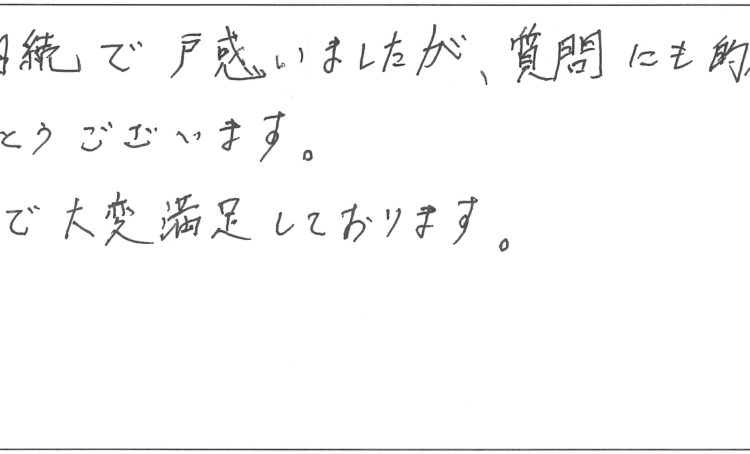 続で戸惑いましたが、質問にも的
とうございます。
で大変満足しております。